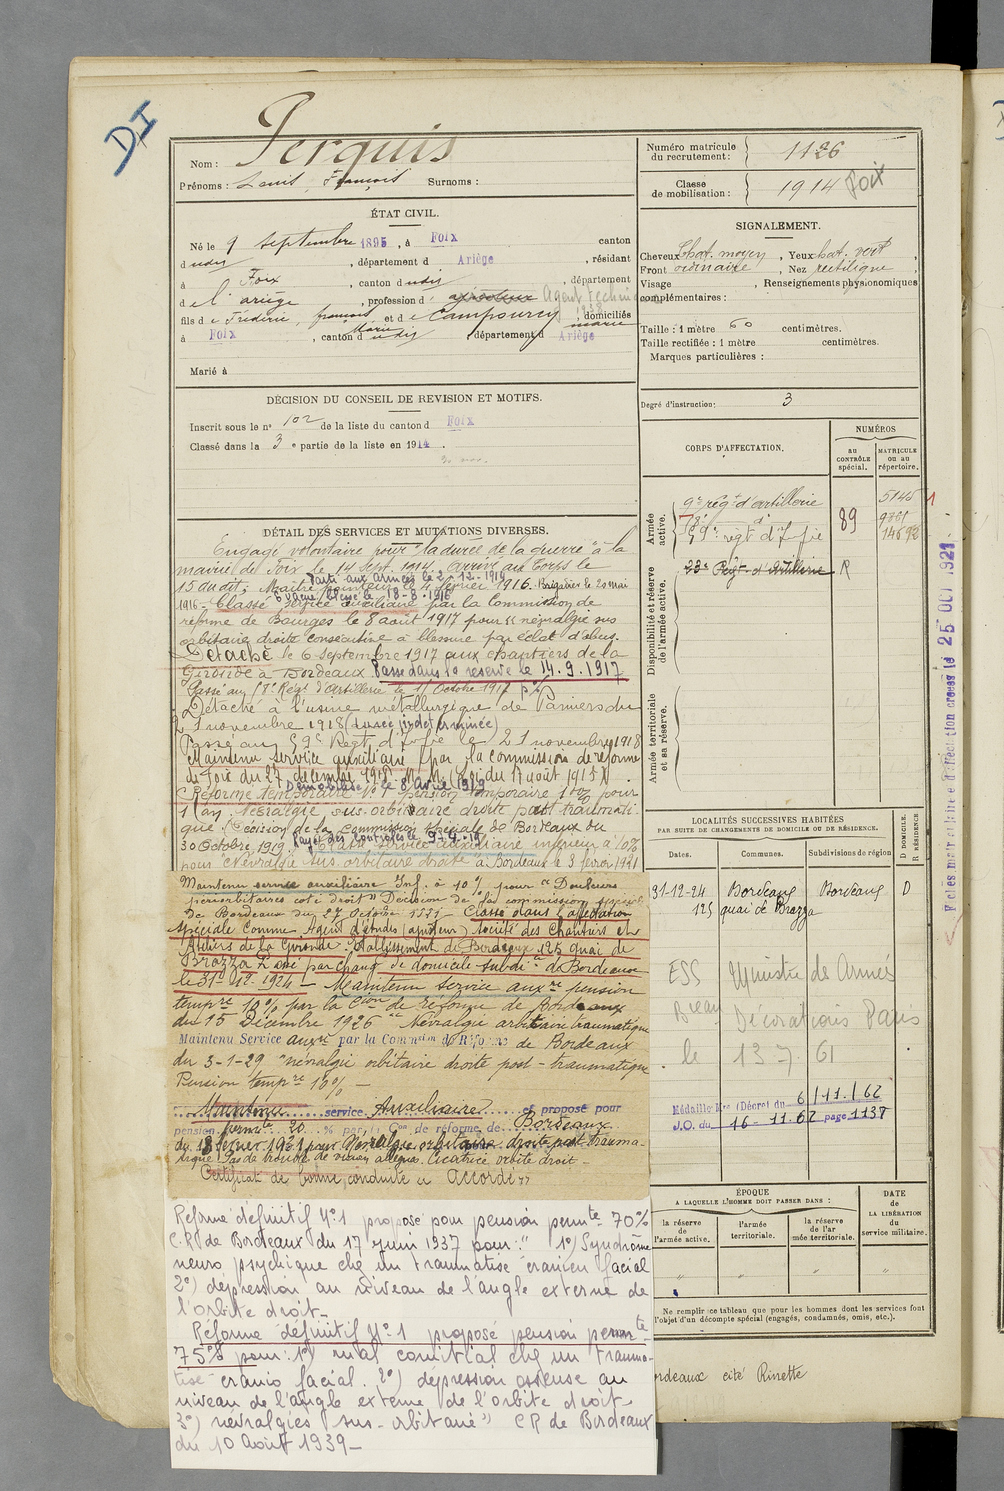 DI
Nom : Perquis
Prénoms : Louis, François Surnoms :
ÉTAT CIVIL.
Né le 9 septembre 1895, à Foix canton
dudis, département d Ariège, résidant
à Foix, canton dudis, département
de l'ariège, profession d' Agent techni
1938
fils de Frédéric, françois et de Campourcy marie, domiciliés
à Foix, canton dudis, département d Ariège
Marié à
DÉCISION DU CONSEIL DE REVISION ET MOTIFS.
Inscrit sous le n° 102 de la liste du canton d Foix
Classé dans la 3e partie de la liste en 1914.
DÉTAIL DES SERVICES ET MUTATIONS DIVERSES.
Engagé volontaire pour "la durée de la guerre" à la
mairie de Foix le 14 sept. 1914, arrivé au Corps le
Parti aux Armées le 2-12-1914
15 du dit; Maître pointeur le 4 février 1916. Brigadier le 20 mai
Évacué blessé le 18-8-1916
1916 - Classé service auxiliaire par la Commission de
réforme de Bourges le 8 août 1917 pour "névralgie sus
orbitaire droite consécutive à blessure par éclat d'obus.
Détaché le 6 septembre 1917 aux chantiers de la
Gironde à Bordeaux Passé dans la réserve le 14.9.1917
Passé au Regt d'artillerie le 1r Octobre 1917
Détaché à l'usine métallurgique de Pamiers du
21 novembre 1918 (durée indéterminée)
Passé au 59e Regt d'Infie le 21 novembre 1918
Maintenu service auxiliaire par la commission de réforme
de Foix du 27 décembre 1918. (loi du 17 août 1915)
Démobilisé le 8 Avril 1919
Réforme temporaire N° 1 pension temporaire 10% pour
1 an, Névralgie sus-orbitaire droite post traumati-
que (Décision de la Commission spéciale de Bordeaux du
Rayé des contrôles le 9-4-19
30 Octobre 1919. Classé service auxiliaire inférieur à 10%
pour "Névralgie sus orbitaire droite" à Bordeaux le 3 février 1921
Maintenu service auxiliaire Inf. à 10% pour "Douleurs
périorbitaires coté droit" Décision de la commission spéciale
de Bordeaux du 27 Octobre 1921 - Classé dans l'affectation
spéciale Comme Agent d'études (ajusteur) Société des Chantiers et
Ateliers de la Gironde. Établissement de Bordeaux 125 quai de
Brazza Passé par changt de domicile subdion de Bordeaux
le 31-Dec. 1924 - Maintenu service auxre pension
tempre 10% par la Cion de réforme de Bordeaux
du 15 Décembre 1926 "Névralgie orbitaire traumatique
Maintenu Service auxre par la Commion de Réfome de Bordeaux
du 3-1-29 "névralgie orbitaire droite post-traumatique
Pension tempre 10% -
Maintenu service Auxiliaire et proposé pour
pension permte 20 % par la Con de réforme de Bordeaux
du 18 février 1931 pour Névralgie orbitaire droite post-trauma-
tique Pas de trouble de vision allégué. Cicatrice orbite droit -
Certificat de bonne conduite "Accordé"
Réforme définitif N°1 proposé pour pension permte 70%
C.R de Bordeaux du 17 juin 1937 pour : " 1°) Syndrôme
neuro psychique chez un traumatisé cranien facial
2°) dépression au niveau de l'angle externe de
l'orbite droit -
Réforme définitif N°1 proposé pension permte -
75% pour : 1°) mal comitial chez un trauma-
tisé cranio facial. 2°) dépression osseuse au
niveau de l'angle externe de l'orbite droit -
3°) névralgies sus-orbitaire" CR de Bordeaux
du 10 Août 1939 -
Numéro matricule du recrutement : 1126
Classe de mobilisation : 1914 Foix
SIGNALEMENT.
Cheveux chat. moyen, Yeux chat. vert,
Front ordinaire, Nez rectiligne,
Visage , Renseignements physionomiques
complémentaires :
Taille : 1 mètre 60 centimètres.
Taille rectifiée : 1 mètre centimètres.
Marques particulières :
Degré d'instruction : 3
CORPS D'AFFECTATION.
NUMÉROS
AU CONTRÔLE spécial.
MATRICULE OU AU répertoire.
Armée active.
9e régt d'artillerie
59e régt d'Infie
89
5145
14692
Disponibilité et réserve de l'armée active.
23e Regt d'Artillerie R
Armée territoriale et sa réserve.
25 OCT 1921
LOCALITÉS SUCCESSIVES HABITÉES
PAR SUITE DE CHANGEMENTS DE DOMICILE OU DE RÉSIDENCE.
Dates.
Communes.
Subdivisions de région
D DOMICILE. R RÉSIDENCE
31-12-24 Bordeaux Bordeaux D
125 quai de Brazza
ESS Ministre des Armées
Beau Décorations Paris
le 13 7 61
Médaille Mre (Décret du 6/11/62
J.O. du 16-11.62 page 1137
ÉPOQUE
A LAQUELLE L'HOMME DOIT PASSER DANS :
la réserve de l'armée active.
l'armée territoriale.
la réserve de l'armée territoriale.
DATE de LA LIBÉRATION du service militaire.
" " " "
Ne remplir ce tableau que pour les hommes dont les services font
l'objet d'un décompte spécial (engagés, condamnés, omis, etc.).
ordeaux cité Rinette